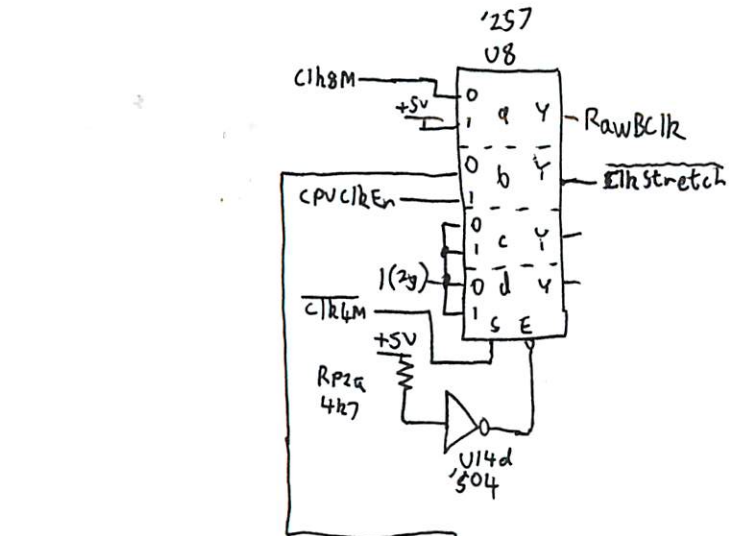 '257
U8
Clk8M
+5V
0
1 a Y
RawBClk
0
b Y
ClkStretch
CPUClkEn
1
0
1 c Y
1(2g)
0 d Y
1
Clk4M
S E
+5V
Rp2a
4k7
U14d
'S04